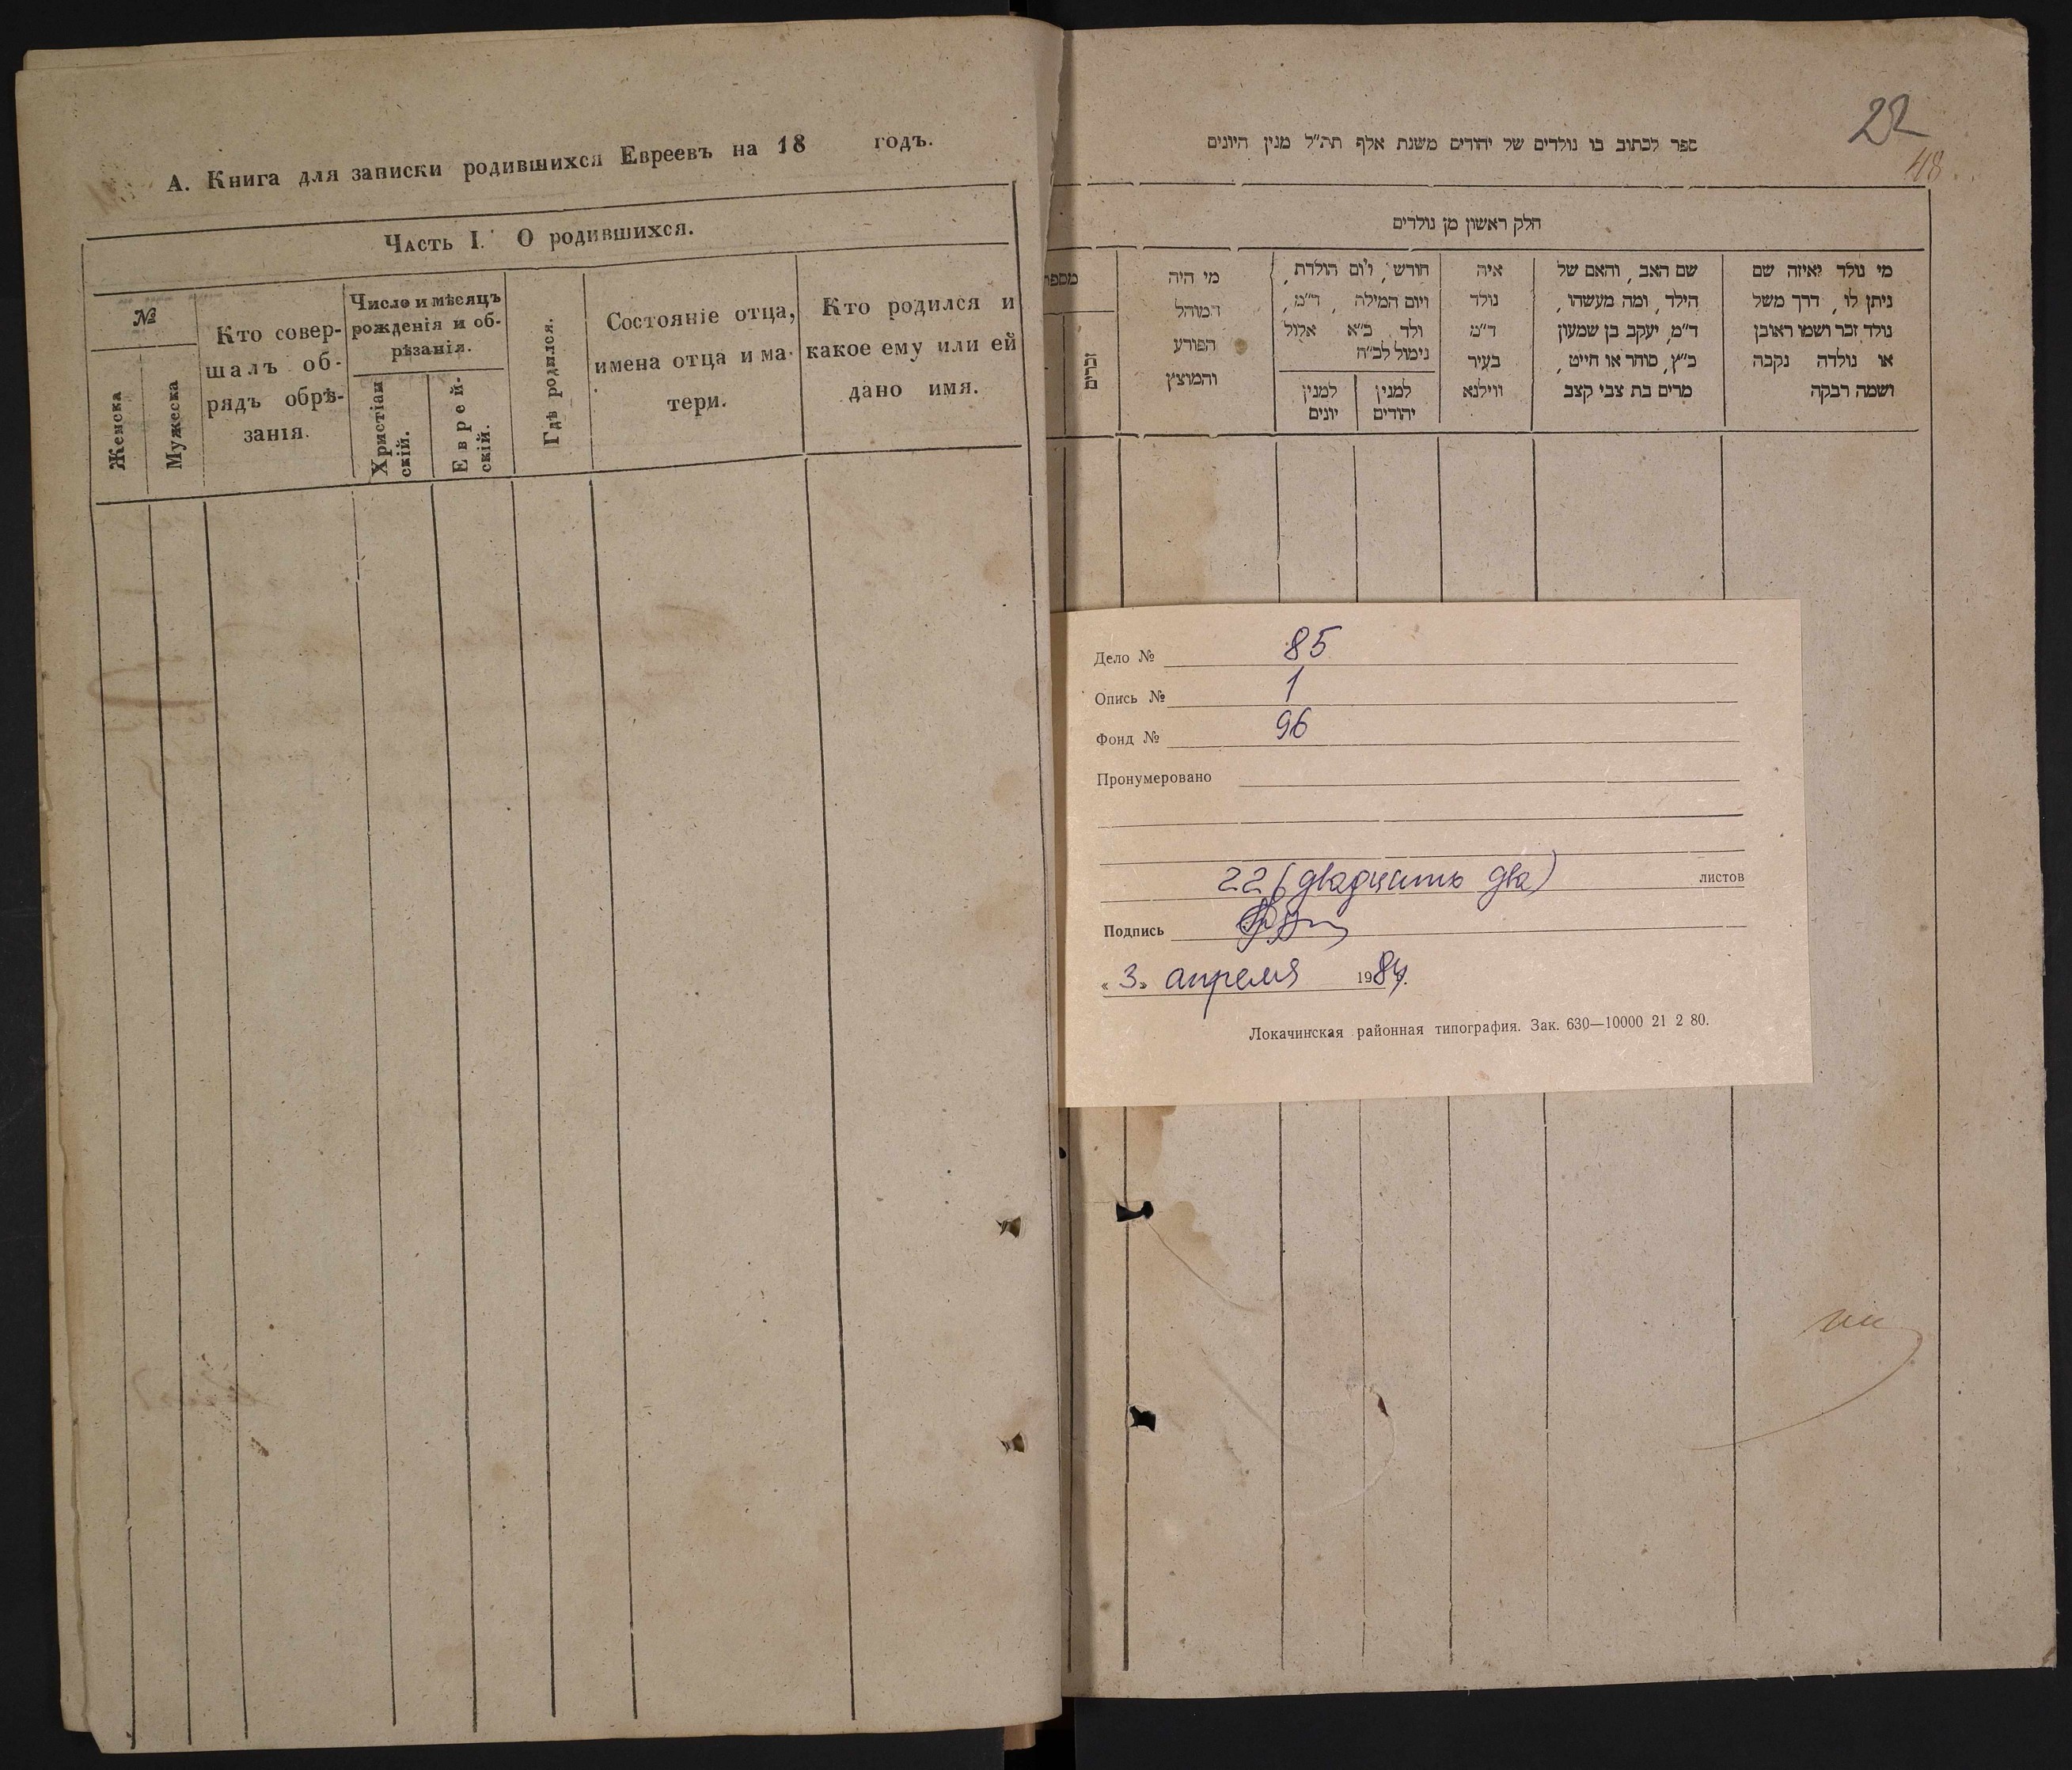 А. Книга для записки родившихся Евреевъ на 18 годъ.
Часть I. О родившихся.
№
Женска
Мужеска
Кто совер-
шалъ об-
рядъ обрѣ-
занія.
Число и мѣсяцъ
рожденія и об-
рѣзанія.
Христіан
скій.
Еврей-
скій.
Гдѣ родился.
Состояніе отца,
имена отца и ма-
тери.
Кто родился и
какое ему или ей
дано имя.
22
48
ספר לכתוב בו נולדים של יהודים משנת אלף תת״ל מנין היונים
חלק ראשון מן נולדים
מי נולד ואיזה שם
ניתן לו, דרך משל
נולד זכר ושמו ראובן
או נולדה נקבה
ושמה רבקה
שם האב, והאם של
הילד, ומה מעשהו,
ד״מ, יעקב בן שמעון
כ״ץ, סוחר או חייט,
מרים בת צבי קצב
איה
נולד
ד״מ
בעיר
ווילנא
חודש, ויום הולדת,
ויום המילה, ד״מ,
ולד כ״א אלול
נימול לכ״ח
למנין
יהודים
למנין
יונים
מי היה
המוהל
הפורע
והמוצץ
מספר
זכרים
Дело № 85
Опись № 1
Фонд № 96
Пронумеровано
22 (двадцать два) листов
Подпись
« 3 » апреля 1984г.
Локачинская районная типография. Зак. 630—10000 21 2 80.